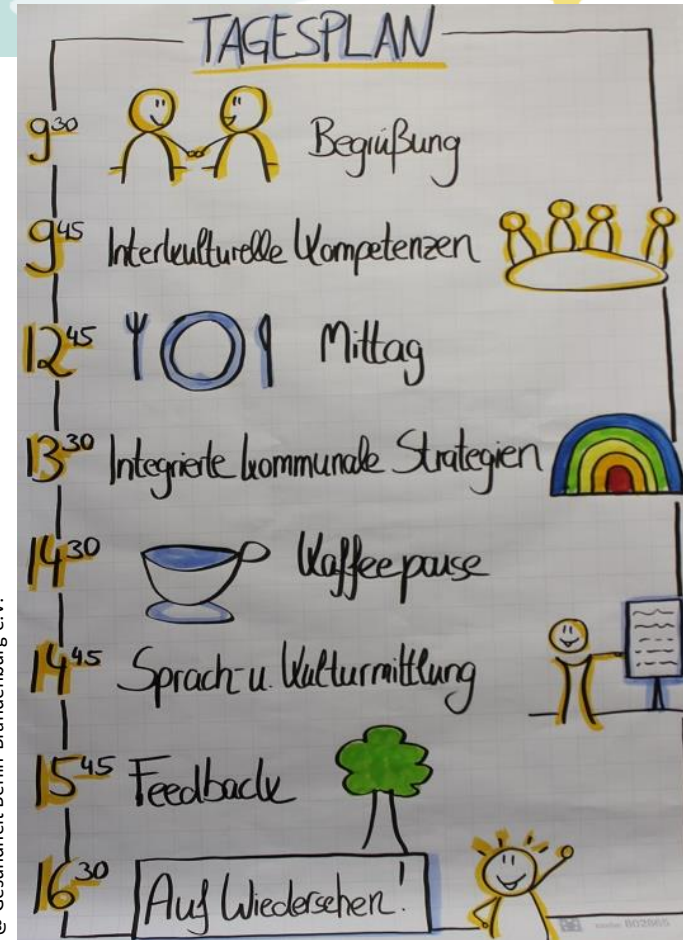 TAGESPLAN
9³⁰ Begrüßung
9⁴⁵ Interkulturelle Kompetenzen
12⁴⁵ Mittag
13³⁰ Integrierte kommunale Strategien
14³⁰ Kaffeepause
14⁴⁵ Sprach- u. Kulturmittlung
15⁴⁵ Feedback
16³⁰ Auf Wiedersehen!
802865
@ Gesundheit Berlin-Brandenburg e.V.